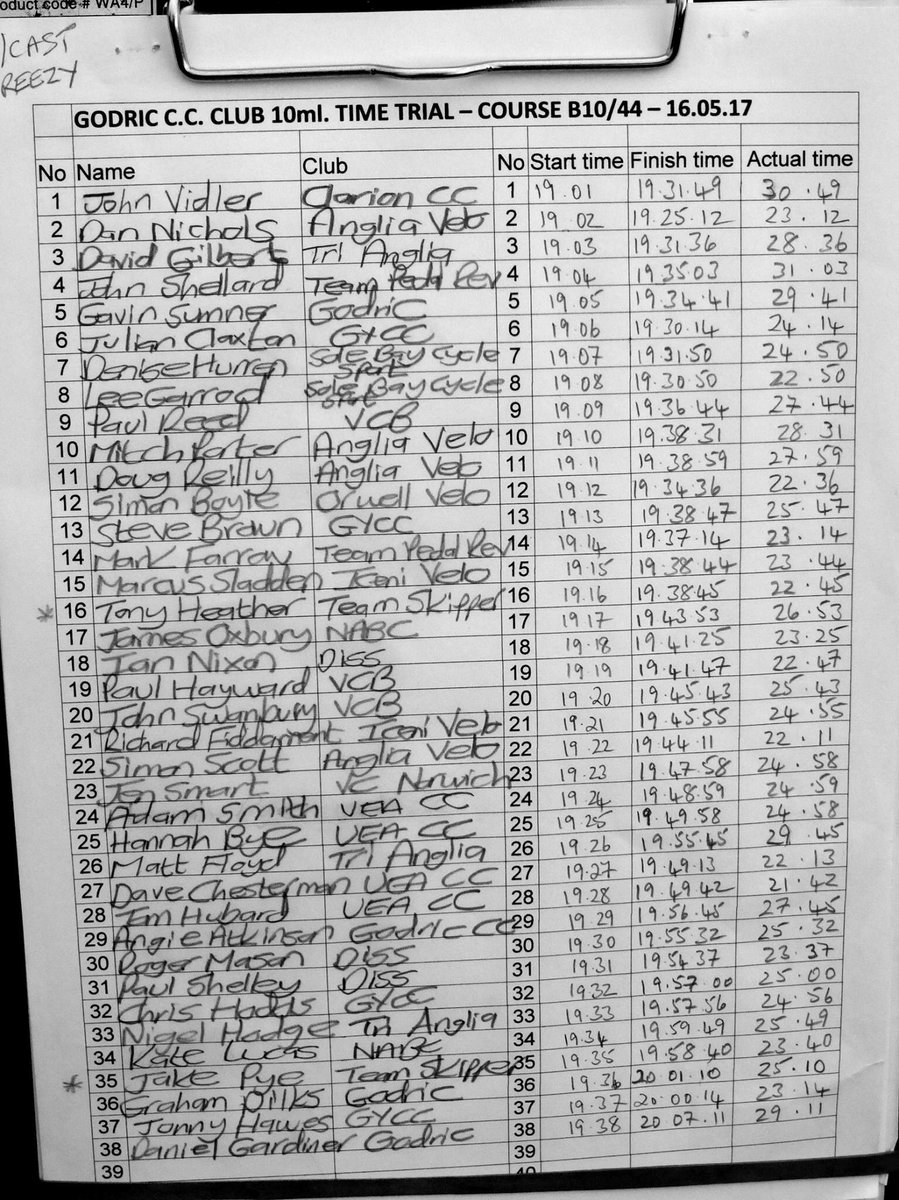 oduct code # WA4/P
/CAST
REEZY
GODRIC C.C. CLUB 10ml. TIME TRIAL – COURSE B10/44 – 16.05.17
No Name Club No Start time Finish time Actual time
1 John Vidler Clarion CC 1 19.01 19.31.49 30.49
2 Dan Nichols Anglia Velo 2 19.02 19.25.12 23.12
3 David Gilberts Tri Anglia 3 19.03 19.31.36 28.36
4 John Shellard Team Pedal Rev 4 19.04 19.35.03 31.03
5 Gavin Sumner Godric 5 19.05 19.34.41 29.41
6 Julian Claxton GYCC 6 19.06 19.30.14 24.14
7 Denise Hurren Sole Bay Cycle Sport 7 19.07 19.31.50 24.50
8 Lee Garrod Sole Bay Cycle Sport 8 19.08 19.30.50 22.50
9 Paul Reed VCB 9 19.09 19.36.44 27.44
10 Mitch Porter Anglia Velo 10 19.10 19.38.31 28.31
11 Doug Reilly Anglia Velo 11 19.11 19.38.59 27.59
12 Simon Boyle Orwell Velo 12 19.12 19.34.36 22.36
13 Steve Braun GYCC 13 19.13 19.38.47 25.47
14 Mark Farray Team Pedal Rev 14 19.14 19.37.14 23.14
15 Marcus Sladden Iceni Velo 15 19.15 19.38.44 23.44
* 16 Tony Heather Team Skipper 16 19.16 19.38.45 22.45
17 James Oxbury NABC 17 19.17 19.43.53 26.53
18 Ian Nixon DISS 18 19.18 19.41.25 23.25
19 Paul Hayward VCB 19 19.19 19.41.47 22.47
20 John Swanbury VCB 20 19.20 19.45.43 25.43
21 Richard Fiddament Iceni Velo 21 19.21 19.45.55 24.55
22 Simon Scott Anglia Velo 22 19.22 19.44.11 22.11
23 Jon Smart VC Norwich 23 19.23 19.47.58 24.58
24 Adam Smith UEA CC 24 19.24 19.48.59 24.59
25 Hannah Bye UEA CC 25 19.25 19.49.58 24.58
26 Matt Floyd Tri Anglia 26 19.26 19.55.45 29.45
27 Dave Chesterman UEA CC 27 19.27 19.49.13 22.13
28 Tim Hubard UEA CC 28 19.28 19.49.42 21.42
29 Angie Atkinson Godric CC 29 19.29 19.56.45 27.45
30 Roger Mason DISS 30 19.30 19.55.32 25.32
31 Paul Shelley DISS 31 19.31 19.54.37 23.37
32 Chris GYCC 32 19.32 19.57.00 25.00
33 Nigel Hodge Tri Anglia 33 19.33 19.57.56 24.56
34 Kate Lucas NABC 34 19.34 19.59.49 25.49
* 35 Jake Pye Team Skipper 35 19.35 19.58.40 23.40
36 Graham Godric 36 19.36 20.01.10 25.10
37 Jonny Hawes GYCC 37 19.37 20.00.14 23.14
38 Daniel Gardiner Godric 38 19.38 20 07.11 29.11
39 39
40